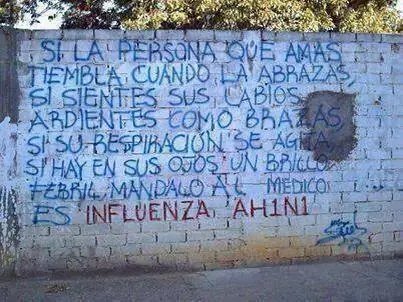 SI LA PERSONA QUE AMAS
TIEMBLA, CUANDO LA ABRAZAS,
SI SIENTES SUS LABIOS
ARDIENTES COMO BRAZAS
SI SU RESPIRACIÓN SE AGITA,
SI HAY EN SUS OJOS UN BRILLO
FEBRIL, MANDALO AL MEDICO
ES INFLUENZA AH1N1